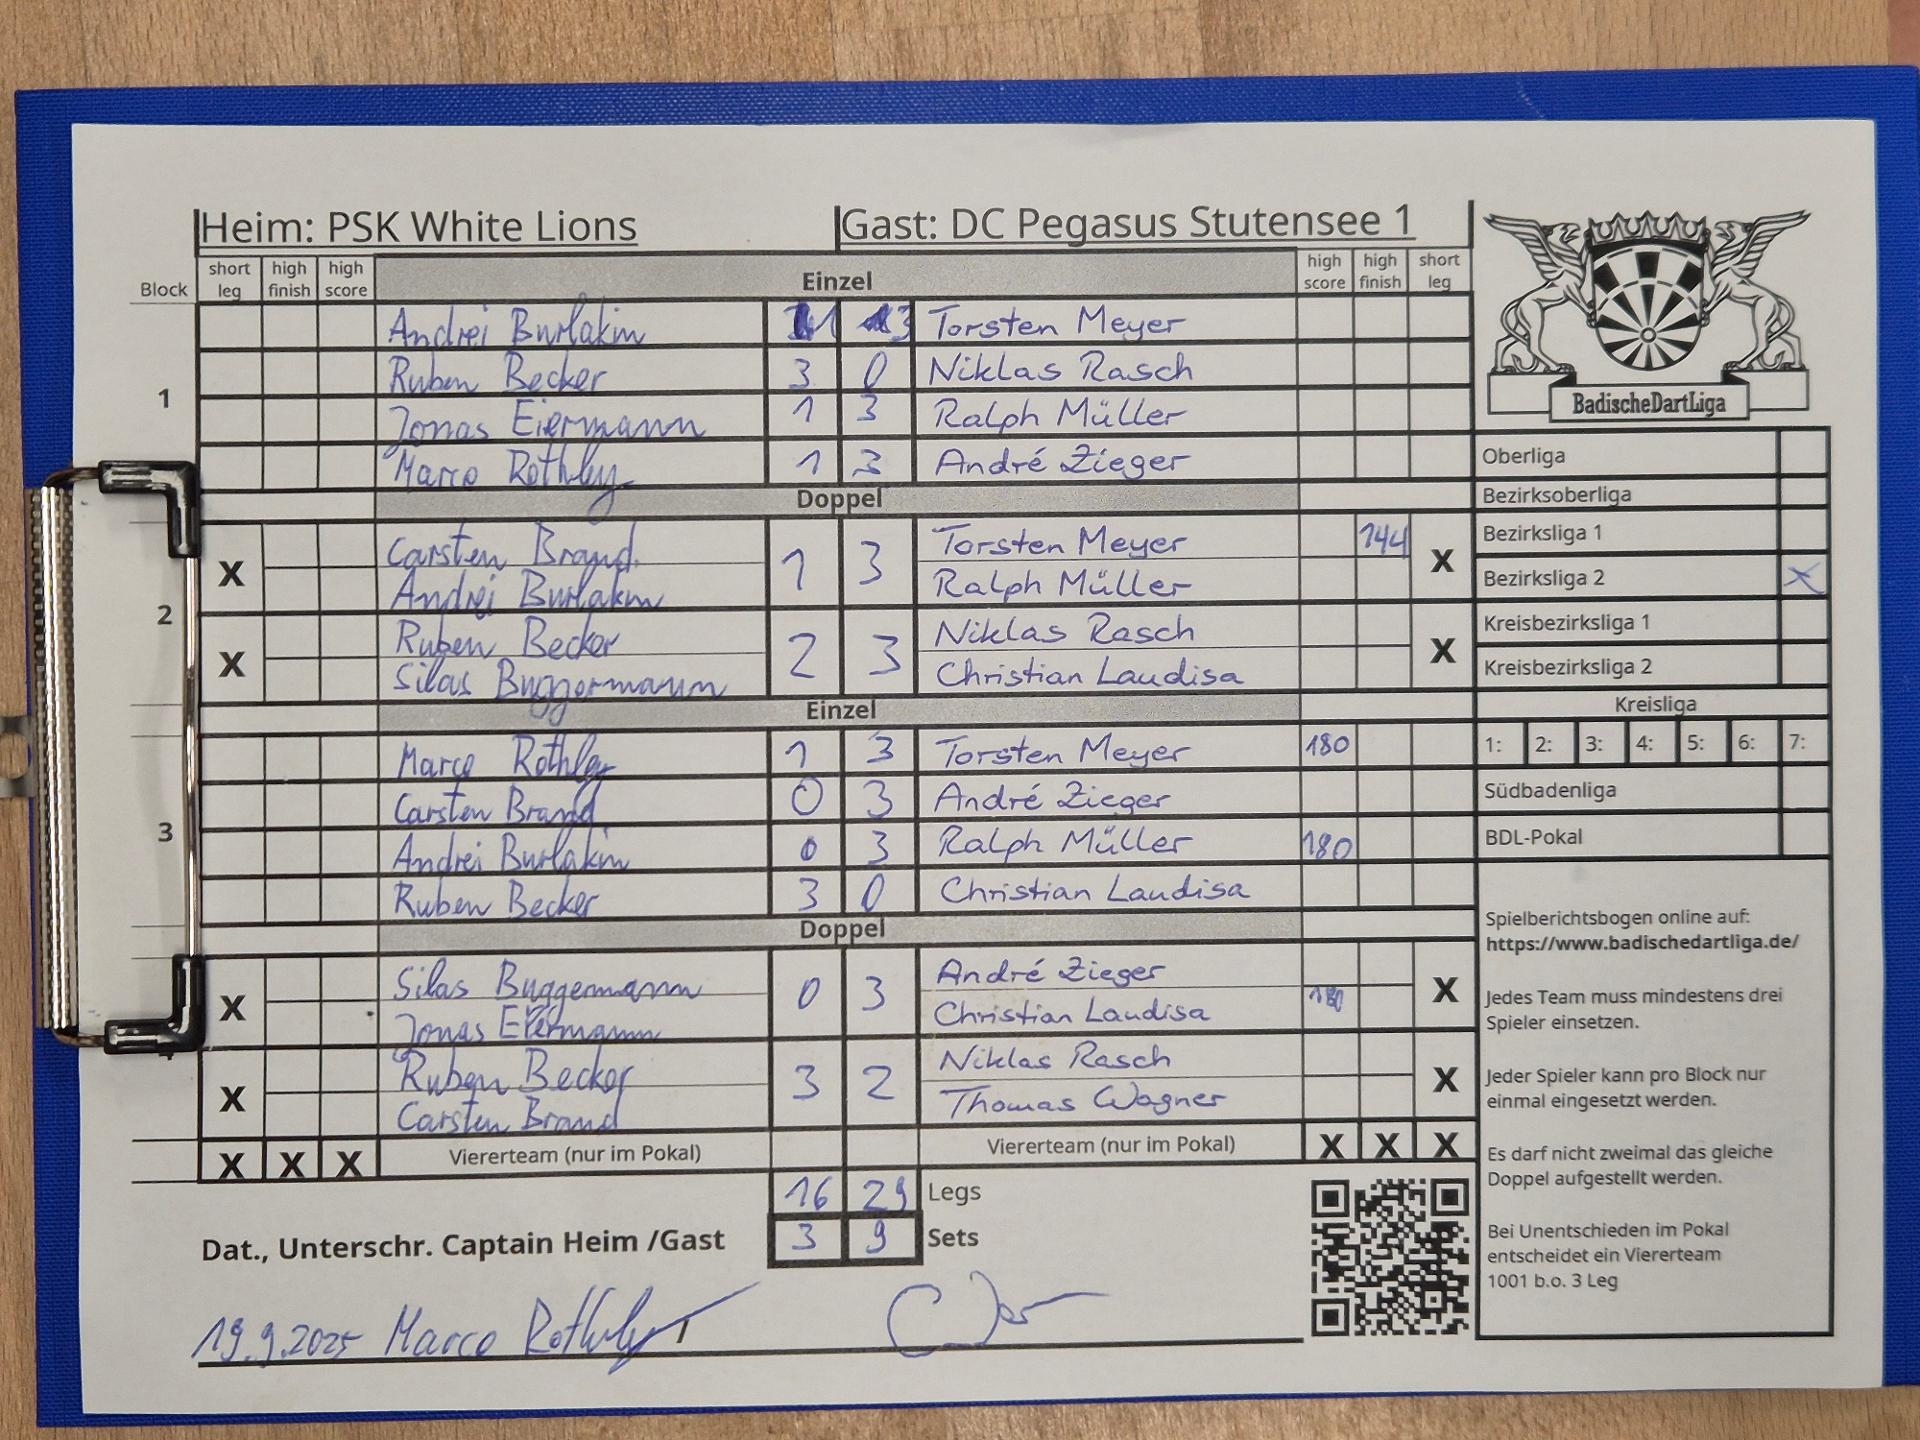 Heim: PSK White Lions Gast: DC Pegasus Stutensee 1
Block short leg high finish high score Einzel high score high finish short leg
1
Andrei Burlakin 1 3 Torsten Meyer
Ruben Becker 3 0 Niklas Rasch
Jonas Eiermann 1 3 Ralph Müller
Marco Rothley 1 3 André Zieger
Doppel
2
X Carsten Brand 1 3 Torsten Meyer 144 X
Andrei Burlakin Ralph Müller
X Ruben Becker 2 3 Niklas Rasch X
Silas Buggermann Christian Laudisa
Einzel
3
Marco Rothley 1 3 Torsten Meyer 180
Carsten Brand 0 3 André Zieger
Andrei Burlakin 0 3 Ralph Müller 180
Ruben Becker 3 0 Christian Laudisa
Doppel
X Silas Buggermann 0 3 André Zieger X
Jonas Eiermann Christian Laudisa 180
X Ruben Becker 3 2 Niklas Rasch X
Carsten Brand Thomas Wagner
X X X Viererteam (nur im Pokal) Viererteam (nur im Pokal) X X X
16 29 Legs
3 9 Sets
Dat., Unterschr. Captain Heim /Gast
19.9.2025 Marco Rothley /
BadischeDartLiga
Oberliga
Bezirksoberliga
Bezirksliga 1
Bezirksliga 2 x
Kreisbezirksliga 1
Kreisbezirksliga 2
Kreisliga
1: 2: 3: 4: 5: 6: 7:
Südbadenliga
BDL-Pokal
Spielberichtsbogen online auf:
https://www.badischedartliga.de/
Jedes Team muss mindestens drei
Spieler einsetzen.
Jeder Spieler kann pro Block nur
einmal eingesetzt werden.
Es darf nicht zweimal das gleiche
Doppel aufgestellt werden.
Bei Unentschieden im Pokal
entscheidet ein Viererteam
1001 b.o. 3 Leg